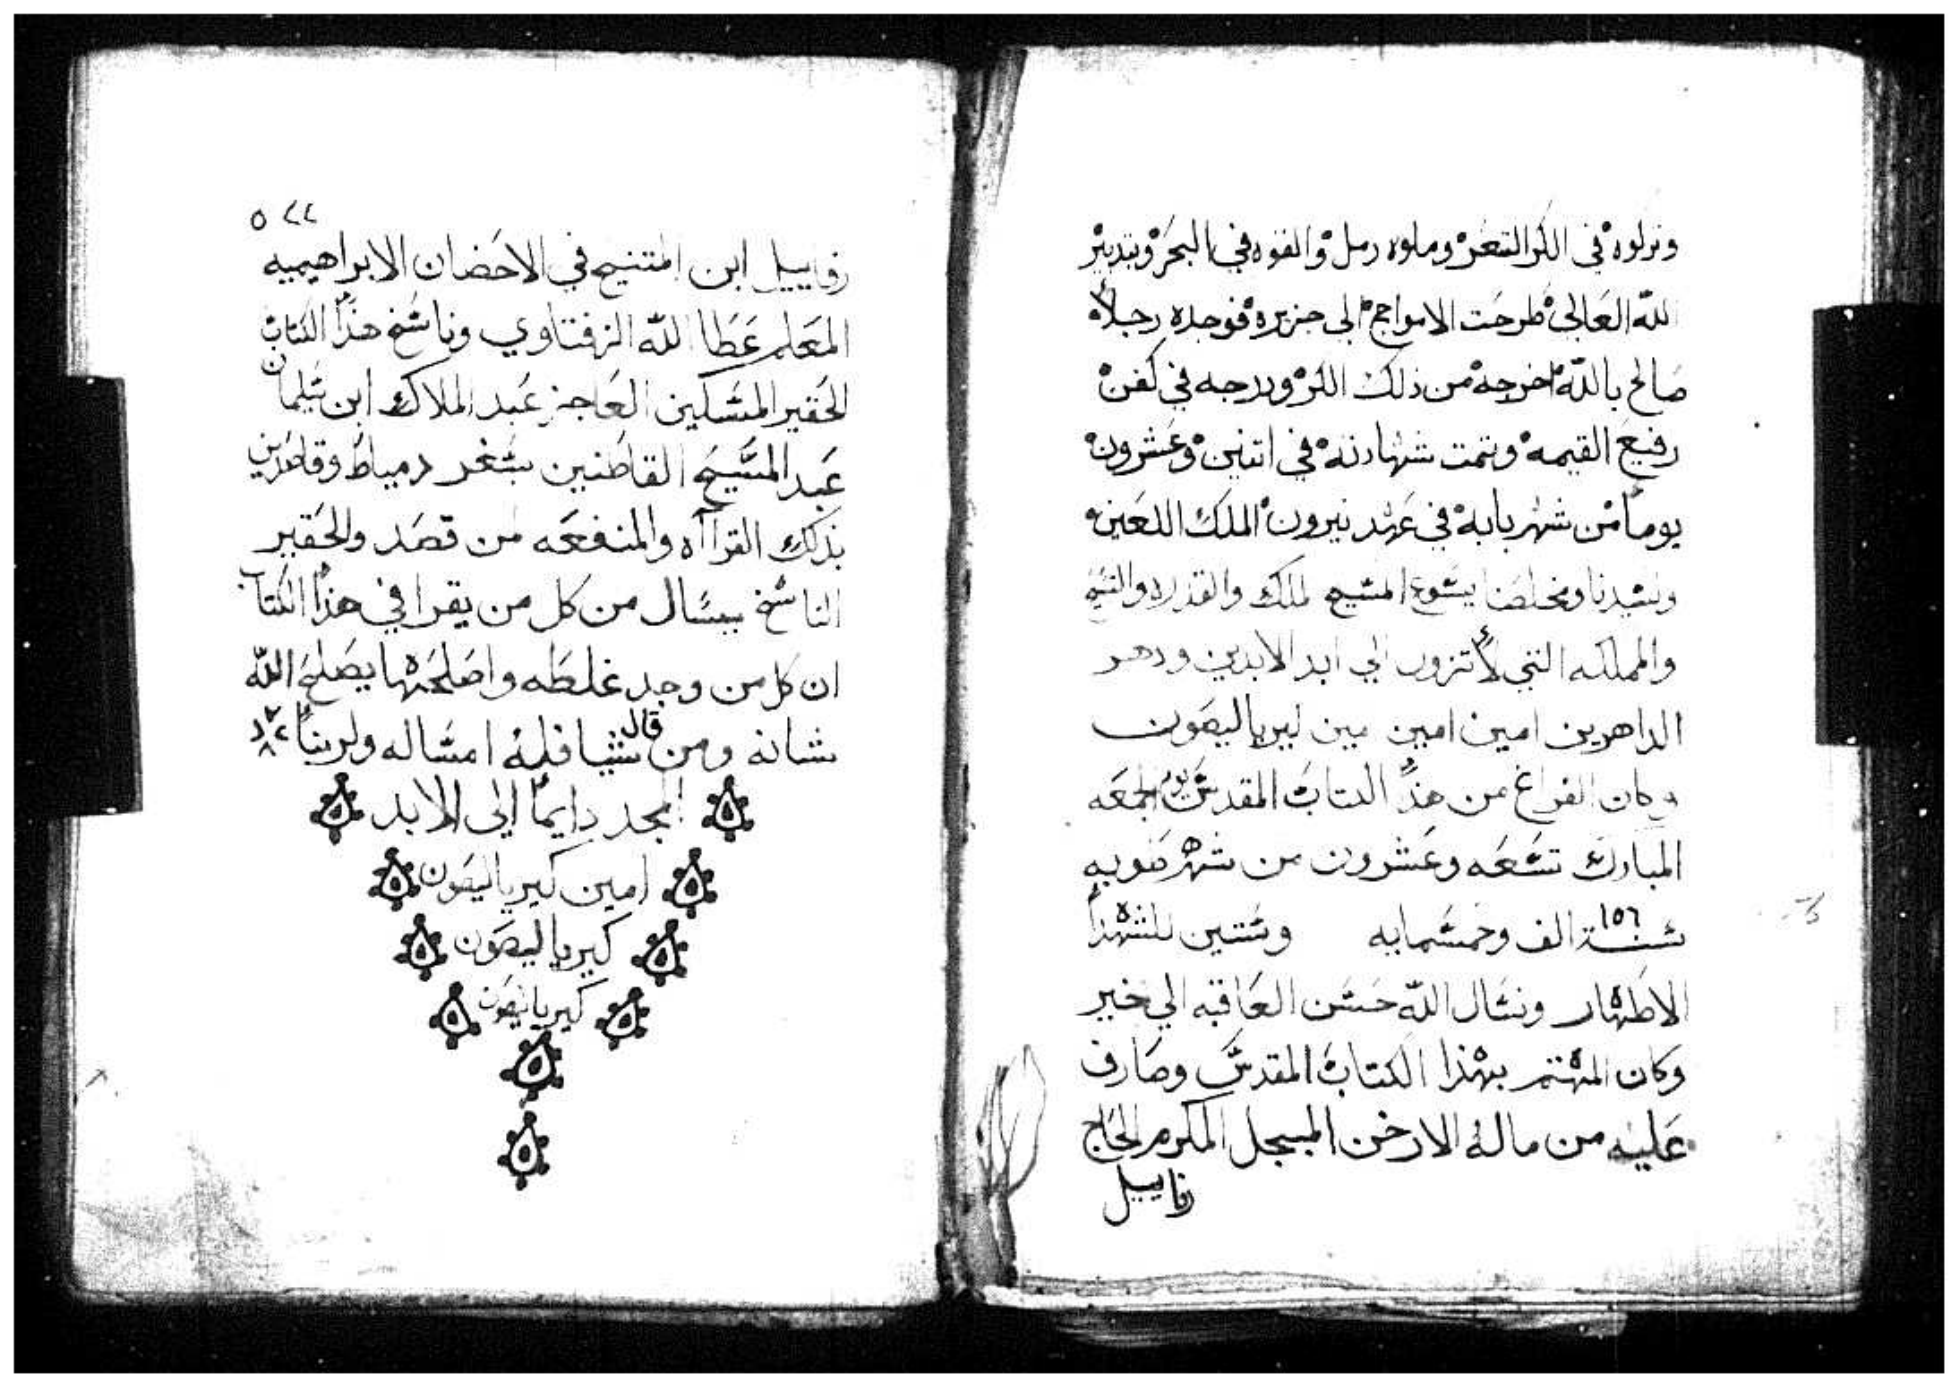 ونزلوه في الكر الشعر وملوه رمل والقوه في البحر وبتدبير
الله العالي طرحت الامواج الي جزيره فوجده رجلاً
صالح بالله اخرجه من ذلك الكر ودرجه في كفن
رفيع القيمه وتمت شهادته في اتنين وعشرون
يوماً من شهر بابه في عهد نيرون الملك اللعين
وسيدنا ومخلصنا يسوع المسيح لملك والقدره
والمملكه التي لا تزول الي ابد الابدين ودهر
الداهرين امين امين كيرياليصون
وكان الفراغ من هذا الكتاب المقدس يوم الجمعه
المبارك تسعه وعشرون من شهر طوبه
١٥٦
سنة الف وخمسمايه وستين للشهدا
الاطهار ونسال الله حسن العاقبه الي خير
وكان المهتم بهذا الكتاب المقدس وصارف
عليه من ماله الارخن المبجل المكرم الحاج
رفاييل
٥٢٢
رفاييل ابن المتنيح في الاحضان الابراهيميه
المعلم عطا الله الزفتاوي وناسخ هذا الكتاب
الحقير المسكين العاجز عبد الملاك ابن
عبد المسيح القاطنين بثغر دمياط وقاصدين
بذلك القرااه والمنفعه من قصد والحقير
الناسخ يسال من كل من يقرا في هذا الكتاب
ان كل من وجد غلطه واصلحها يصلح الله
شانه ومن قال شيا فله امساله ولربنا
المجد دايماً الي الابد
امين كيرياليصون
كيرياليصون
كيرياليصون